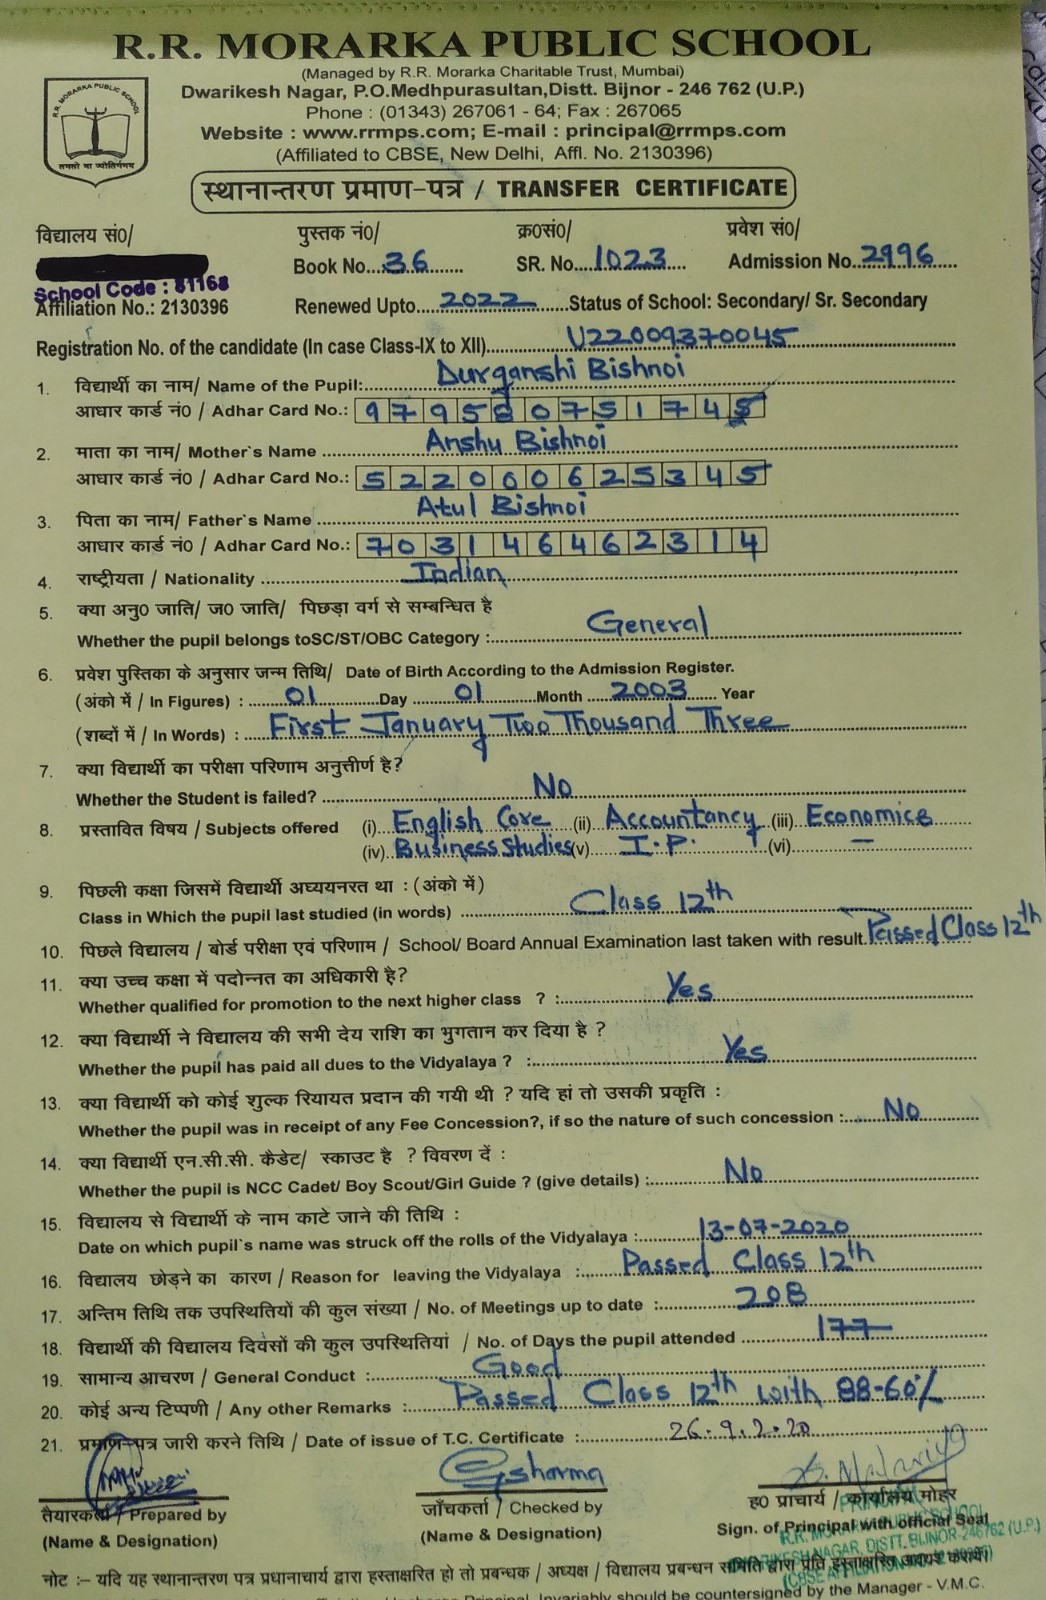 R.R. MORARKA PUBLIC SCHOOL
(Managed by R.R. Morarka Charitable Trust, Mumbai)
Dwarikesh Nagar, P.O.Medhpurasultan,Distt. Bijnor - 246 762 (U.P.)
Phone : (01343) 267061 - 64; Fax : 267065
Website : www.rrmps.com; E-mail : principal@rrmps.com
(Affiliated to CBSE, New Delhi, Affl. No. 2130396)
R.R. MORARKA PUBLIC SCHOOL
तमसो मा ज्योतिर्गमय
स्थानान्तरण प्रमाण-पत्र / TRANSFER CERTIFICATE
विद्यालय सं0/ पुस्तक नं0/ क्र0सं0/ प्रवेश सं0/
Book No...36....... SR. No...1023.... Admission No..2996....
School Code : 81168
Affiliation No.: 2130396 Renewed Upto....2022......Status of School: Secondary/ Sr. Secondary
Registration No. of the candidate (In case Class-IX to XII)......U22009370045......
1. विद्यार्थी का नाम/ Name of the Pupil:......Durganshi Bishnoi......
आधार कार्ड नं0 / Adhar Card No.: 9 7 9 5 8 0 7 5 1 7 4 5
2. माता का नाम/ Mother`s Name ......Anshu Bishnoi......
आधार कार्ड नं0 / Adhar Card No.: 5 2 2 0 0 6 2 5 3 4 5
3. पिता का नाम/ Father`s Name ......Atul Bishnoi......
आधार कार्ड नं0 / Adhar Card No.: 7 0 3 1 4 6 4 6 2 3 1 4
4. राष्ट्रीयता / Nationality ......Indian......
5. क्या अनु0 जाति/ ज0 जाति/ पिछड़ा वर्ग से सम्बन्धित है
Whether the pupil belongs toSC/ST/OBC Category :......General......
6. प्रवेश पुस्तिका के अनुसार जन्म तिथि/ Date of Birth According to the Admission Register.
(अंको में / In Figures) : ......01......Day ......01......Month ....2003...... Year
(शब्दों में / In Words) : ....First January Two Thousand Three......
7. क्या विद्यार्थी का परीक्षा परिणाम अनुत्तीर्ण है?
Whether the Student is failed? ......No......
8. प्रस्तावित विषय / Subjects offered (i).. English Core (ii) Accountancy (iii) Economics
(iv)..Business Studies(v).. I.P. (vi)... —
9. पिछली कक्षा जिसमें विद्यार्थी अघ्ययनरत था : (अंको में)
Class in Which the pupil last studied (in words) ......Class 12th......
10. पिछले विद्यालय / बोर्ड परीक्षा एवं परिणाम / School/ Board Annual Examination last taken with result. Passed Class 12th
11. क्या उच्च कक्षा में पदोन्नत का अधिकारी है?
Whether qualified for promotion to the next higher class ? :......Yes......
12. क्या विद्यार्थी ने विद्यालय की सभी देय राशि का भुगतान कर दिया है ?
Whether the pupil has paid all dues to the Vidyalaya ? :......Yes......
13. क्या विद्यार्थी को कोई शुल्क रियायत प्रदान की गयी थी ? यदि हां तो उसकी प्रकृति :
Whether the pupil was in receipt of any Fee Concession?, if so the nature of such concession :......No......
14. क्या विद्यार्थी एन.सी.सी. कैडेट/ स्काउट है ? विवरण दें :
Whether the pupil is NCC Cadet/ Boy Scout/Girl Guide ? (give details) :......No......
15. विद्यालय से विद्यार्थी के नाम काटे जाने की तिथि :
Date on which pupil`s name was struck off the rolls of the Vidyalaya :......13-07-2020......
16. विद्यालय छोड़ने का कारण / Reason for leaving the Vidyalaya :......Passed Class 12th......
17. अन्तिम तिथि तक उपस्थितियों की कुल संख्या / No. of Meetings up to date :......208......
18. विद्यार्थी की विद्यालय दिवसों की कुल उपस्थितियां / No. of Days the pupil attended ......177......
19. सामान्य आचरण / General Conduct :......Good......
20. कोई अन्य टिप्पणी / Any other Remarks :......Passed Class 12th with 88-60%
21. प्रमाण-पत्र जारी करने तिथि / Date of issue of T.C. Certificate :......26.9.2020
Sharma
तैयारकर्ता / Prepared by जाँचकर्ता / Checked by ह0 प्राचार्य / कार्यालय मोहर
(Name & Designation) (Name & Designation) Sign. of Principal with official Seal
PRINCIPAL
R.R. MORARKA PUBLIC SCHOOL
DWARIKESH NAGAR, DISTT. BIJNOR-246762 (U.P.)
नोट :– यदि यह स्थानान्तरण पत्र प्रधानाचार्य द्वारा हस्ताक्षरित हो तो प्रबन्धक / अध्यक्ष / विद्यालय प्रबन्धन समिति द्वारा प्रति हस्ताक्षरित अवश्य करायें।
Principal, Invariably should be countersigned by the Manager - V.M.C.